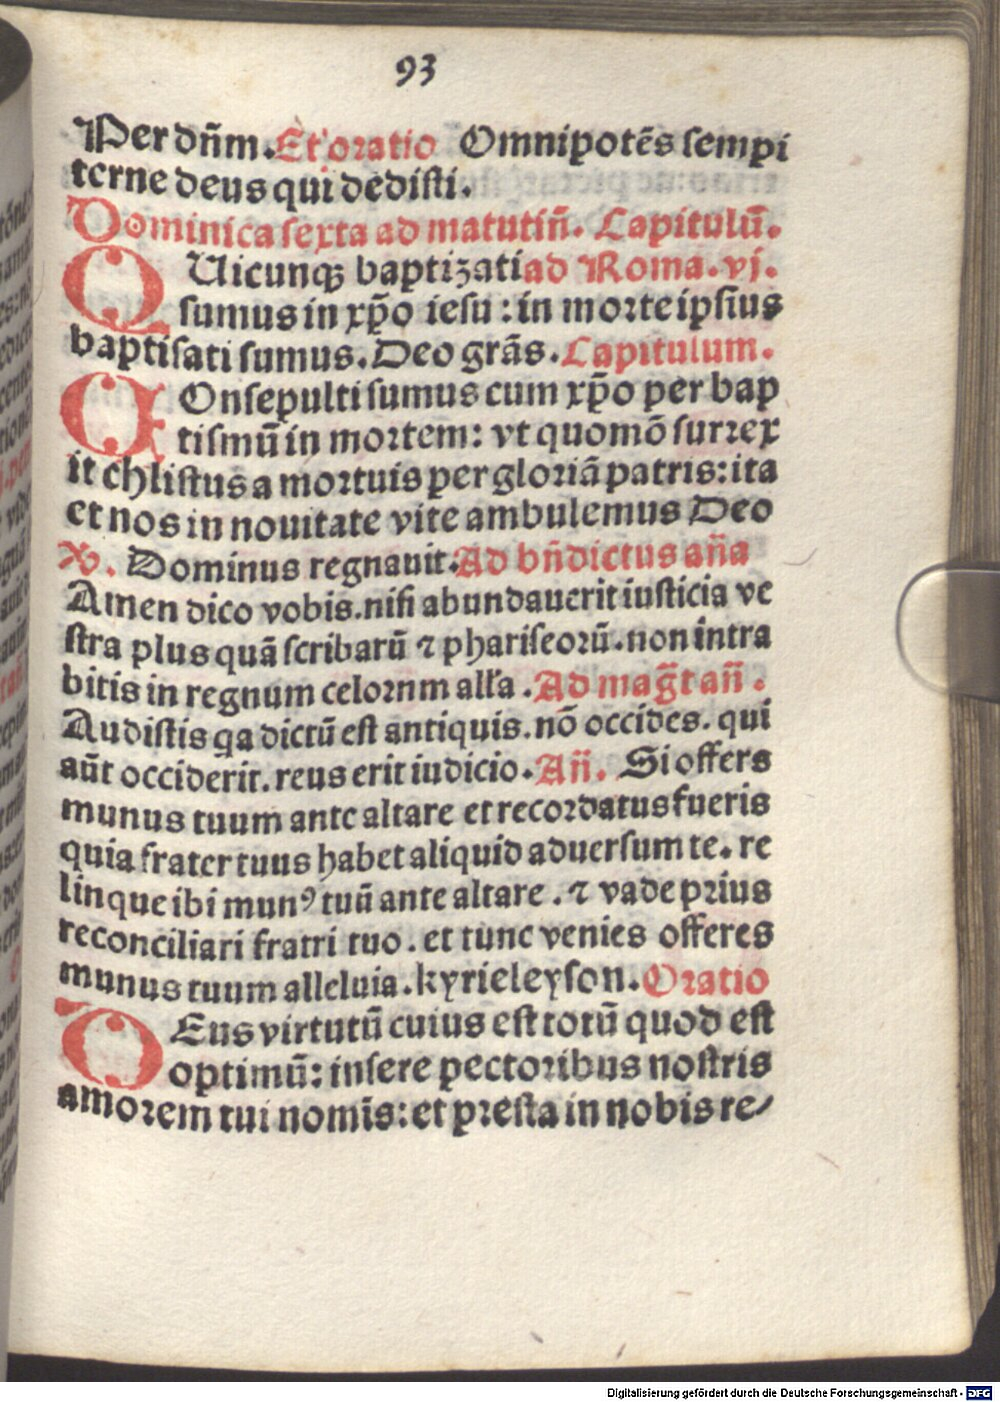 93
Per dn̄m. Et oratio Omnipotēs sempi
terne deus qui dedisti.
Dominica sexta ad matutin̄. Capitulū.
QUicunqꝫ baptizati ad Roma. vj.
sumus in xp̄o iesu : in morte ipsius
baptisati sumus. Deo grās. Capitulum.
COnsepulti sumus cum xp̄o per bap
tismū in mortem: vt quomō surrex
it chlistus a mortuis per gloriā patris: ita
et nos in nouitate vite ambulemus Deo
℟. Dominus regnauit. Ad bn̄dictus an̄a
Amen dico vobis. nisi abundauerit iusticia ve
stra plus quā scribarū ⁊ phariseorū. non intra
bitis in regnum celornm all'a. Ad maḡt an̄.
Audistis qa dictū est antiquis. nō occides. qui
aūt occiderit. reus erit iudicio. An̄. Si offers
munus tuum ante altare et recordatus fueris
quia frater tuus habet aliquid aduersum te. re
linque ibi munꝰ tuū ante altare. ⁊ vade prius
reconciliari fratri tuo. et tunc venies offeres
munus tuum alleluia. kyrieleyson. Oratio
DEus virtutū cuius est totū quod est
optimū: insere pectoribus nostris
amorem tui nomīs: et presta in nobis re/
Digitalisierung gefördert durch die Deutsche Forschungsgemeinschaft - DFG